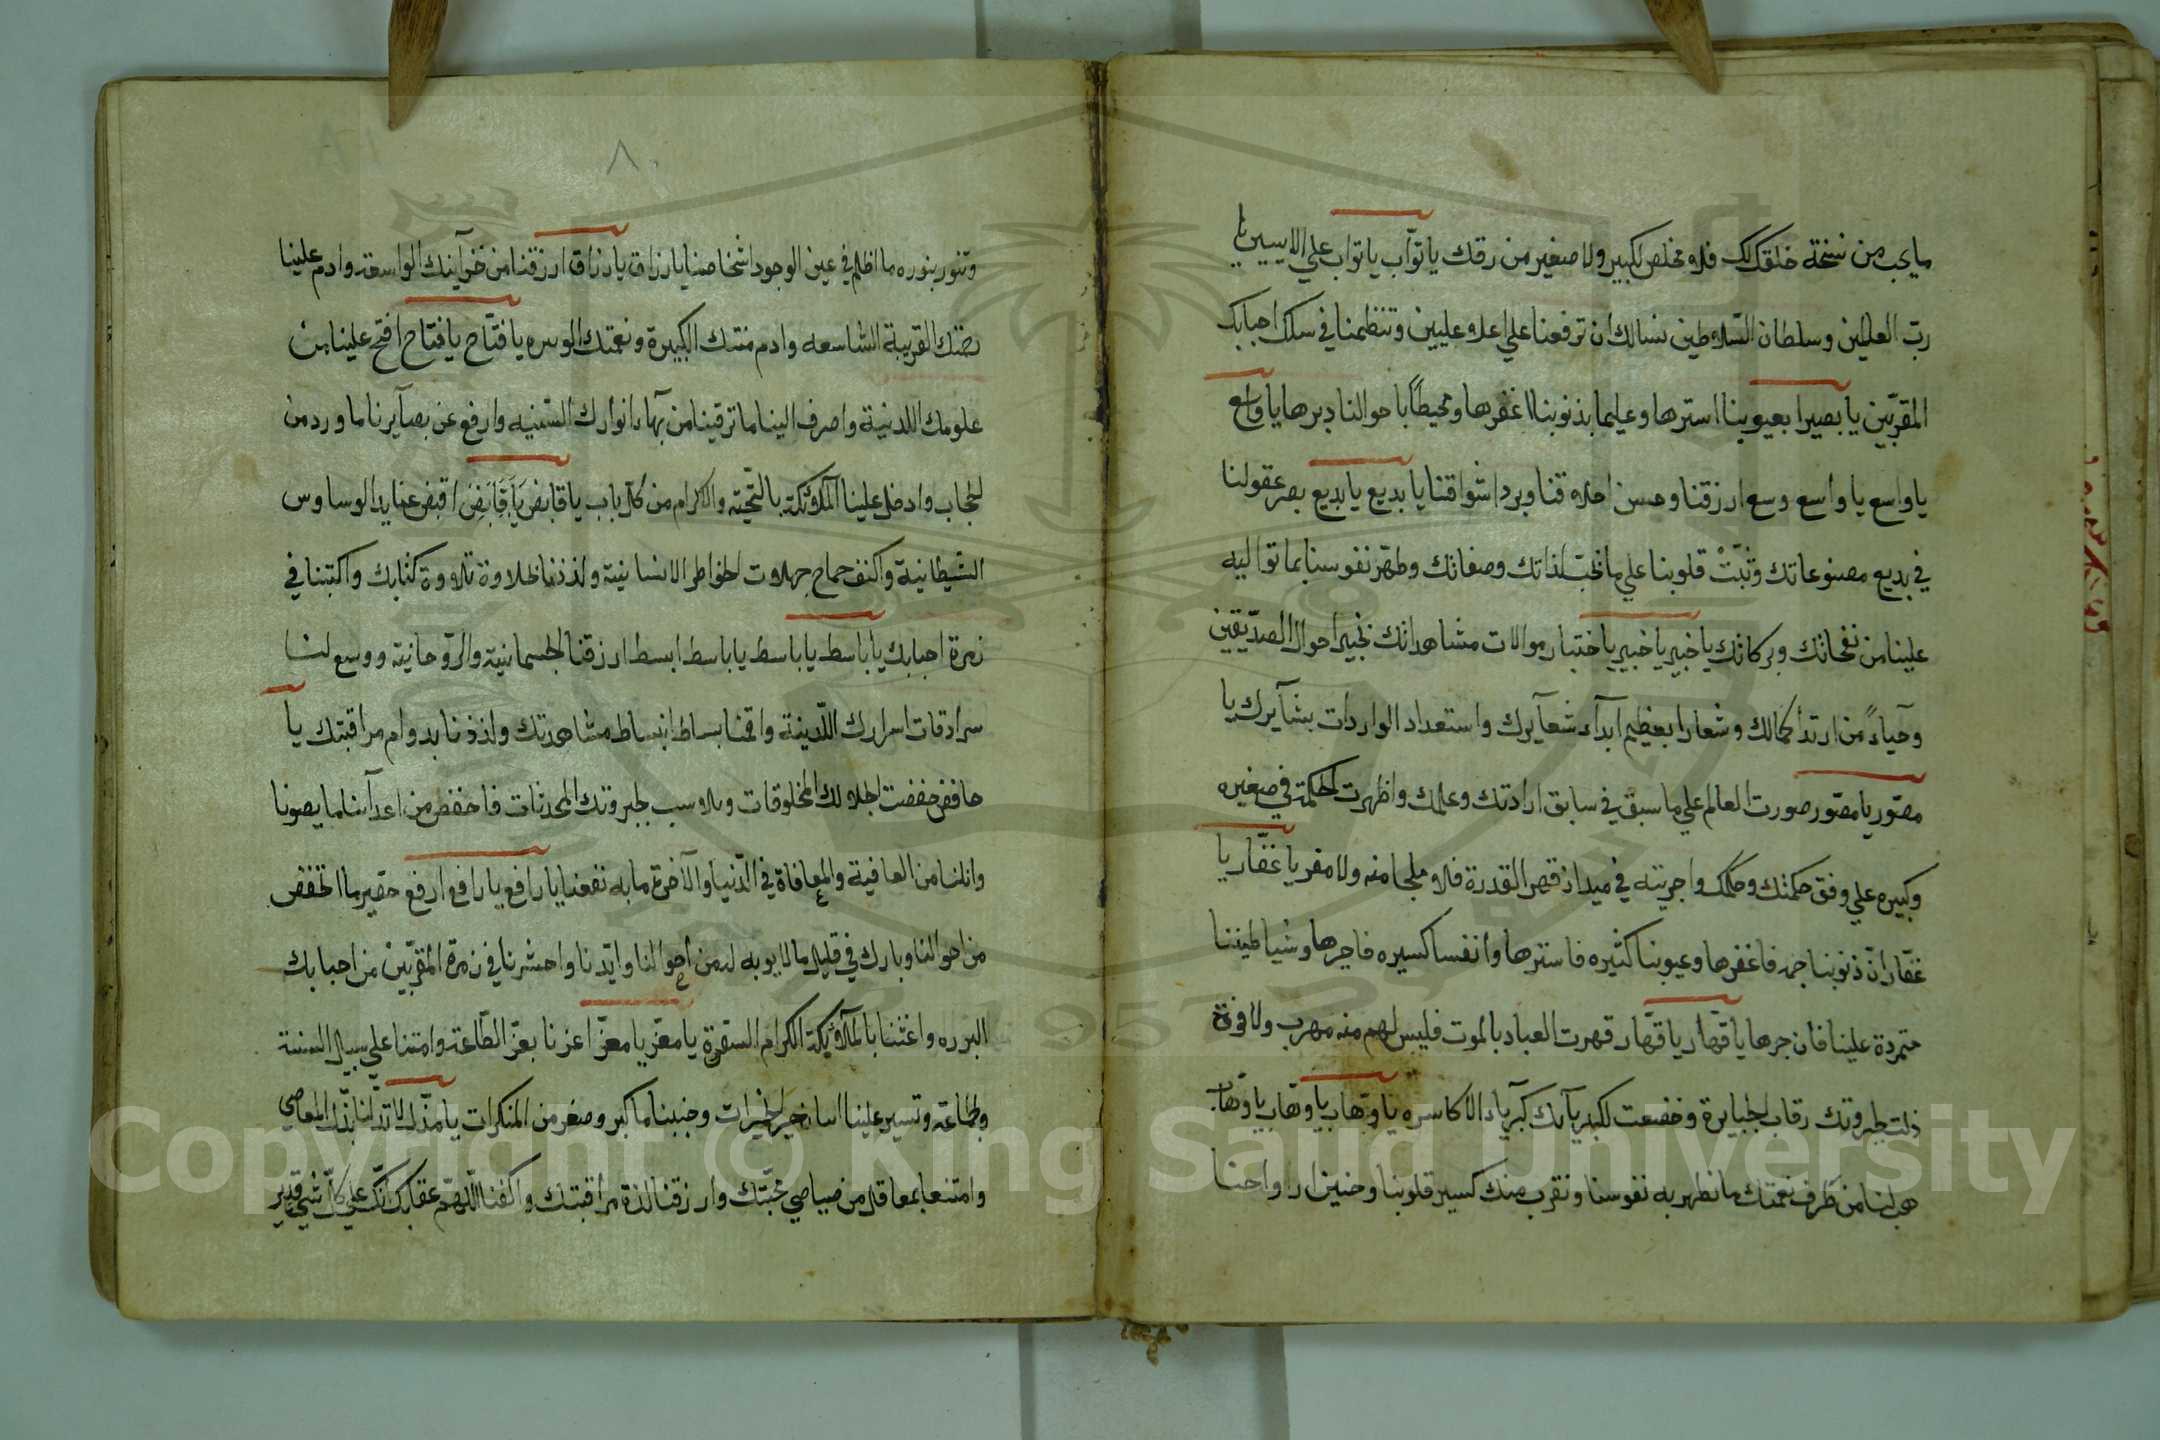 ما يجب من نسخة خلقك لك فلاه مخلص لكبير ولا صغير من رقك يا توّاب يا تواب علي الايسين يا
ربّ العالمين وسلطان السّلاطين نسالك ان ترفعنا علي اعلاه عليين وتنظمنا في سلك احبابك
المقربّين يا بصيرا بعيوبنا استرها وعليما بذنوبنا اغفرها ومحيطاً باحوالنا دبرها يا واسع
يا واسع يا واسع وسع ارزقنا وحسن اخلاه قنا وبرد اشواقنا يا بديع يا بديع بصر عقولنا
في بديع مصنوعاتك وثبّتْ قلوبنا علي ما تحبّ لذاتك وصفاتك وطهّر نفوسنا بما تواليه
علينا من نفحاتك وبركاتك يا خبير يا خبير يا ختبار موالات مشاهداتك نخبير احوال الصدّيقين
وحياءً من ارتدا كمالك وشعارا بعظيم ابدآء شعآيرك واستعداد الواردات بشآيرك يا
مصّور يا مصّور صورت العالم علي ما سبق في سابق ارادتك وعلمك واظهرت الحكمة في صغيره
وكبيره علي وفق حكمتك وحكمك واجريته في ميدان قهر القدرة فلاه ملجا منه ولا مفر يا غفّار يا
غفّار انّ ذنوبنا جمه فاغفرها وعيوبنا كثيره فاسترها وأنفسا كسيره فاجبرها وشياطيننا
متمردة علينا فان جرها يا قهّار يا قهّار قهرت العباد بالموت فليس لهم منه مهرب ولا فوة
ذلت لجبروتك رقاب الجبابرة وخضعت لكبريآيك كبرياء الاكاسره يا وهّاب يا وهّاب يا وهّاب
هب لنا من طرف نعمتك ما تطهر به نفوسنا وتقرب منك كسير قلوبنا وحنين ارواحنا
وتنور بنوره ما اظلم في عين الوجود اشخاصنا يا رزاق يا رزاق ارزقنا من خزآينك الواسعة وادم علينا
القريبة الشاسعه وادم منتك الكبيرة ونعمتك يا فتّاح يا فتاح افتح علينا من
علومك اللدنية واصرف الينا ما ترقينا من بهآء انوارك السّنيه وارفع عن بصآيرنا ما ورد من
الحجاب وادخل علينا الملآئكة بالتحيّة والاكرام من كل باب يا قابض يا قابض اقبض عنا يد الوساوس
الشيطانية واكنف جماح جهلات الخواطر الانسانية ولذذنا بحلاوة تلاوة كتابك واكتبنا في
زمرة احبابك يا باسط يا باسط يا باسط ابسط ارزقنا الجسمانية والرّوحانية ووسع لنا
سرادقات اسرارك اللّدينة واقمنا بساط انبساط مشاهدتك ولذذنا بدوام مراقبتك يا
خافض خفضت اجلالك المخلوقات وبلاه سبب جبروتك المحدثات فاخفض من اعدآئنا لما يصونا
وانلنا من العافية والمعافاة في الدّنيا والآخرة ما به نفعنا يا رافع يا رافع ارفع حقير ما انخفض
من احوالنا وبارك في قليل ما لا يوبه له من أحوالنا وايّدنا واحشرنا في زمرة المقربّين من احبابك
البرره واغثنا بالملآئكة الكرام السّفرة يا معزّ يا معزّ اعزنا بعزّ الطّاعة وامتنا علي سبيل السنة
وطاعة وتسير علينا اسباخير الخيرات وجنبنا ما كبر وصغر من المنكرات يا مذّل لا تذّلنا بذّل المعاصي
وامتنعا بمعاقل من صياصي محبّتك وارزقنا لذة مراقبتك واكفنا اللّهمّ عقابك انّك علي كلّ شي قدير